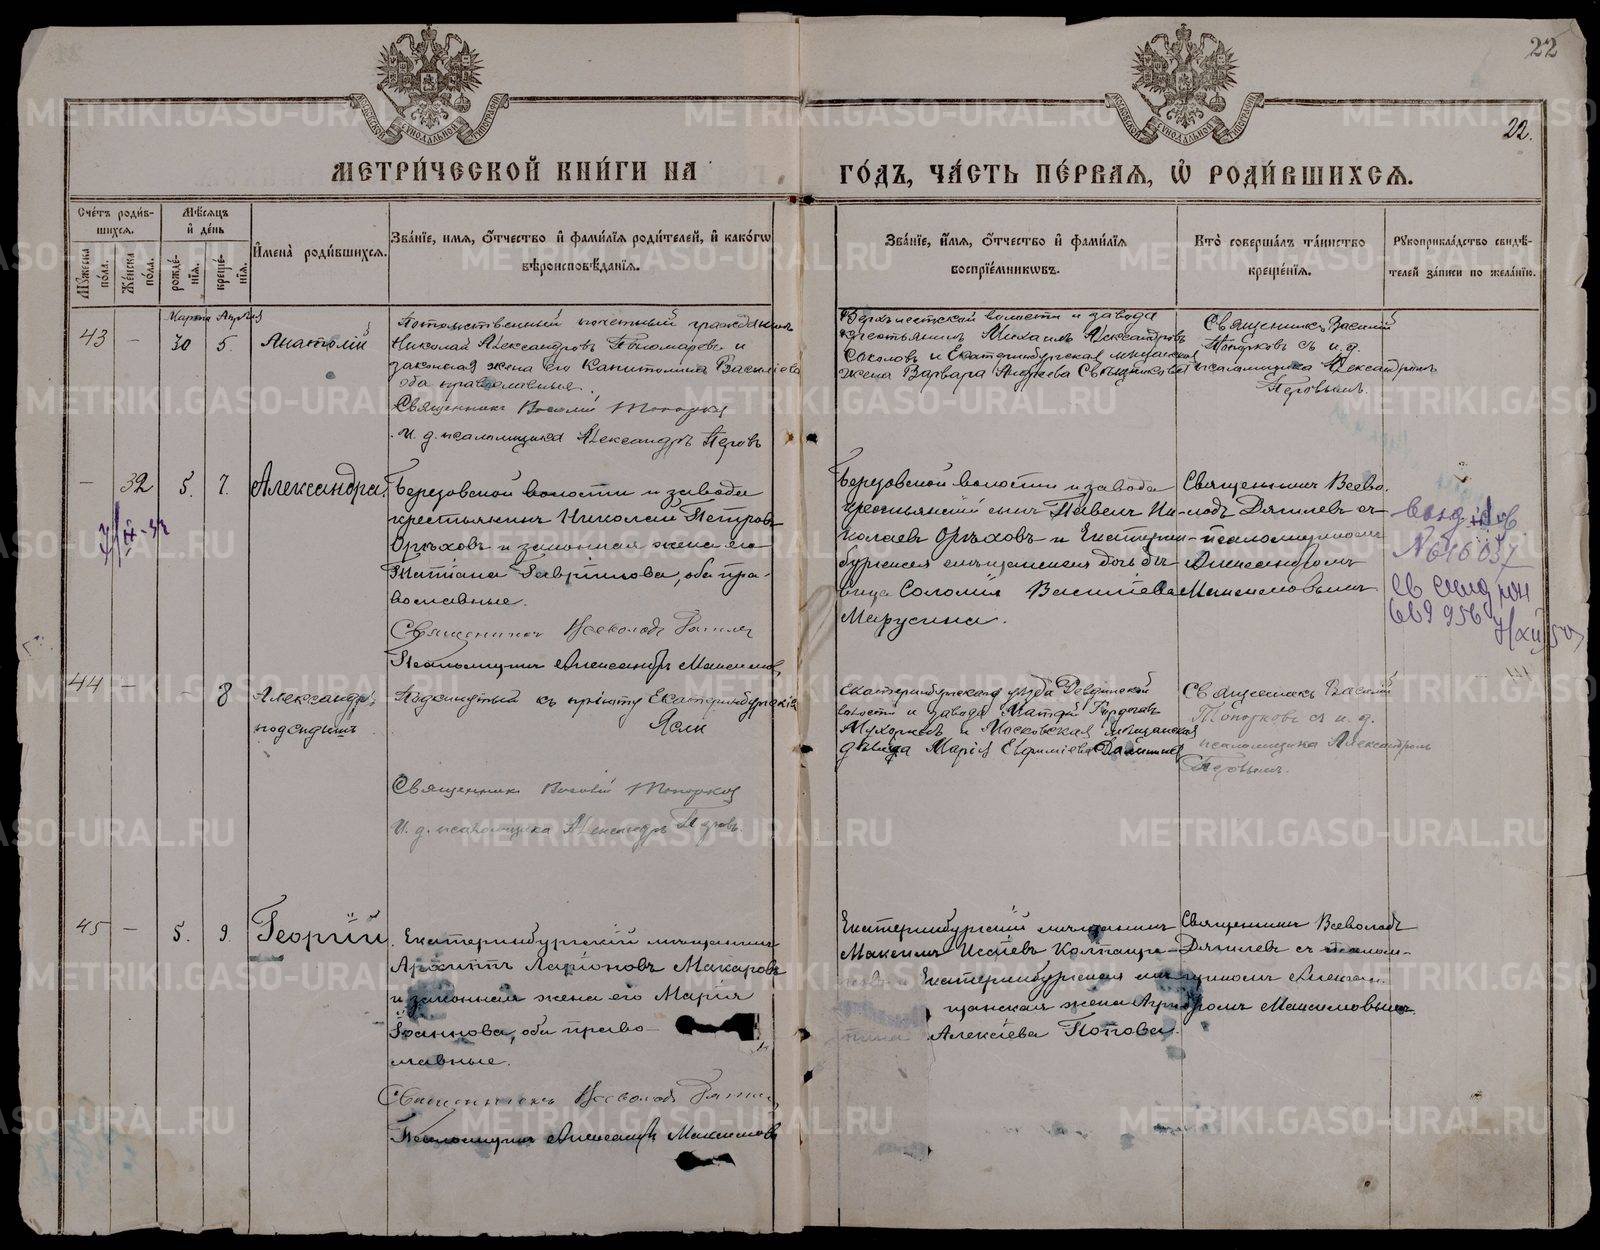 22
22.
МЕТРИ́ЧЕСКОЙ КНИ́ГИ НА
ГО́ДЪ, ЧА́СТЬ ПЕ́РВАѦ, Ѡ҆ РОДИ́ВШИХСѦ.
Сче́тъ роди́в-
шихсѧ.
Мѣ́сѧцъ
и҆ де́нь
Му́жеска
по́ла.
Же́нска
по́ла.
рожде́-
нїѧ.
креще́-
нїѧ.
И҆мена̀ роди́вшихсѧ.
Зва́нїе, имѧ, ѻ҆́тчество и҆ фами́лїѧ роди́телей, и҆ како́гѡ
вѣроисповѣ́данїѧ.
Зва́нїе, и҆́мѧ, ѻ҆́тчество и҆ фами́лїѧ
воспрїе́мникѡвъ.
Кто̀ соверша́лъ та́инство
креще́нїѧ.
Рꙋкоприкла́дство свидѣ́-
телей за́писи по жела́нїю.
Марта Апрѣля
43 - 30 5. Анатолій
Потомственный почетный гражданинъ
Николай Александровъ Пономаревъ и
законная жена его Капитолина Васильева
оба православные.
Священникъ Василій Топорковъ
И. д. псаломщика Александръ Перовъ
волости и завода
крестьянинъ Михаилъ Александровъ
Соколовъ и Екатеринбургская мещанская
жена Варвара Андреева
Священникъ Василій
Топорковъ съ и. д.
псаломщика Александромъ
Перовымъ.
- 32 5. 7. Александра
Березовской волости и завода
крестьянинъ Николай Петровъ
Орѣховъ и законная жена его
Татіана Гаврилова, оба пра-
вославные.
Священникъ Всеволодъ Дягилев
Псаломщикъ Александръ Максимов
Березовской волости и завода
крестьянскій сынъ Павелъ Ни-
колаевъ Орѣховъ и Екатерин-
бургская мѣщанская дочь дѣ-
вица Соломія Васильева
Марусина.
Священникъ Всево-
лодъ Дягилевъ съ
псаломщикомъ
Александромъ
Максимовымъ
№ 646 037
669 956
44 - - 8 Александръ,
подкидышъ
Подкинутый къ пріюту Екатеринбургскія
Ясли
Священникъ Василій Топорков
И. д. псаломщика Александръ Перовъ.
Екатеринбургскаго уѣзда
волости и завода Матфей
и Московская мѣщанская
дѣвица Марія Евфиміева
Священникъ Василій
Топорковъ съ и. д.
псаломщика Александромъ
Перовымъ.
45 - 5. 9. Георгій
Екатеринбургскій мѣщанинъ
Архиппъ Ларіоновъ Макаровъ
и законная жена его Марія
Іоаннова, оба право-
славные.
Священникъ Всеволодъ Дягилев
Псаломщикъ Александръ Максимовъ
Екатеринбургскій мѣщанинъ
Максимъ Исаевъ
Екатеринбургская мѣ-
щанская жена
Алексіева Попова.
Священникъ Всеволодъ
Дягилевъ съ псалом-
щикомъ Алексан-
дромъ Максимовымъ.
METRIKI.GASO-URAL.RU